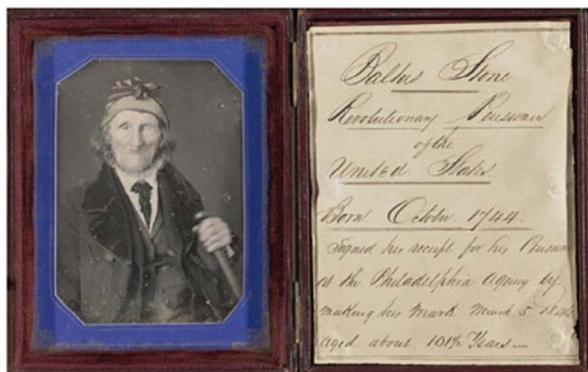 Baltus Stone
Revolutionary Pensioner
of the
United States.
Born October 1744.
Signed his receipt for his Pension
at the Philadelphia Agency by
making his mark March 5
aged about 101½ Years